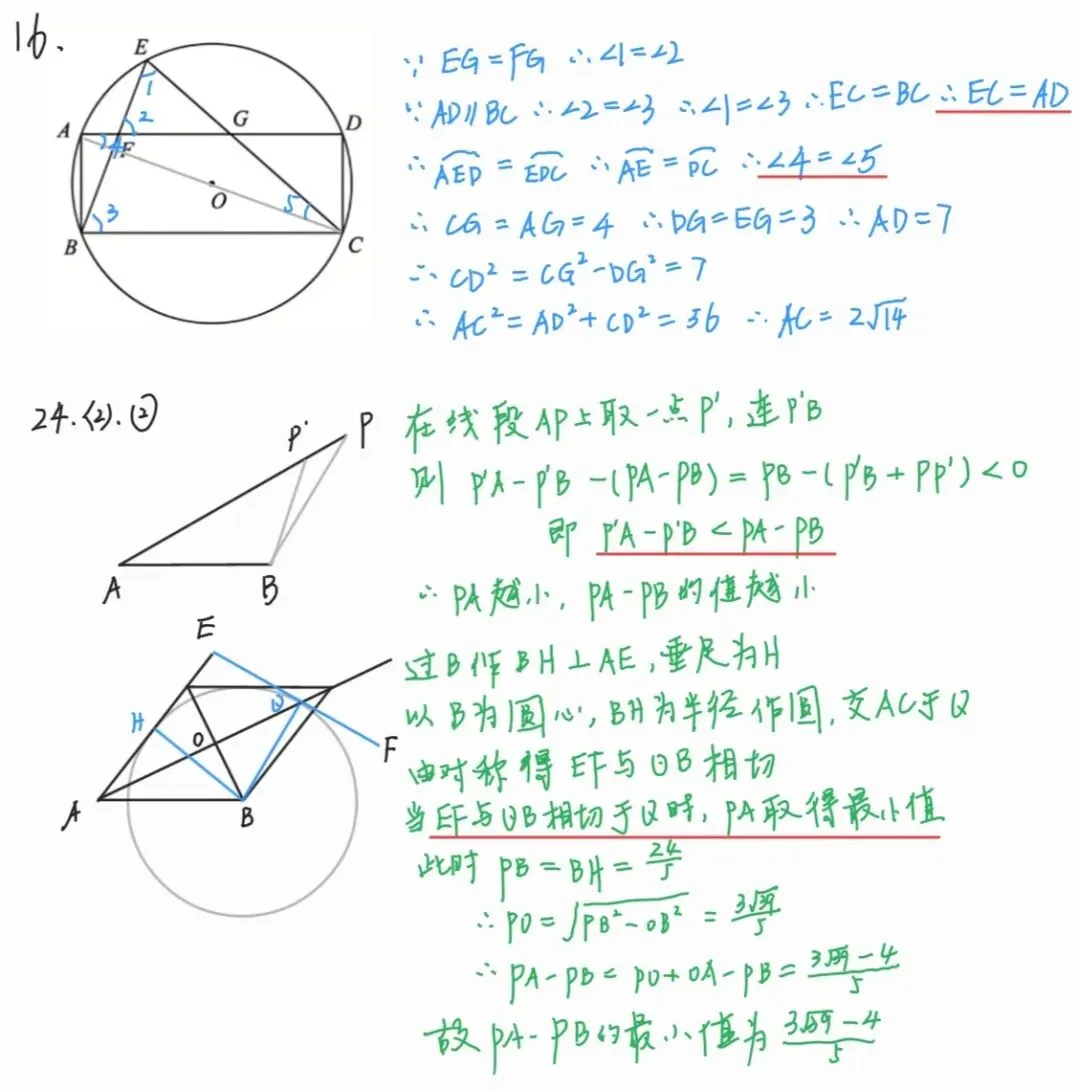 16.
E
1
A 2 G D
4 F
O 5
3
B C
∵ EG = FG ∴ ∠1 = ∠2
∵ AD∥BC ∴ ∠2 = ∠3 ∴ ∠1 = ∠3 ∴ EC = BC ∴ EC = AD
∴ \overset{\frown}{AED} = \overset{\frown}{EDC} ∴ \overset{\frown}{AE} = \overset{\frown}{DC} ∴ ∠4 = ∠5
∴ CG = AG = 4 ∴ DG = EG = 3 ∴ AD = 7
∴ CD² = CG² - DG² = 7
∴ AC² = AD² + CD² = 56 ∴ AC = 2√14
24.(2).②
P' P
A B
在线段AP上取一点P', 连P'B
则 P'A - P'B - (PA - PB) = PB - (P'B + PP') < 0
即 P'A - P'B < PA - PB
∴ PA越小, PA - PB的值越小
E
H Q
O F
A B
过B作BH⊥AE, 垂足为H
以B为圆心, BH为半径作圆, 交AC于Q
由对称得EF与⊙B相切
当EF与⊙B相切于Q时, PA取得最小值
此时 PB = BH = 24/5
∴ PO = √(PB² - OB²) = 3√39/5
∴ PA - PB = PO + OA - PB = (3√39 - 4)/5
故PA - PB的最小值为 (3√39 - 4)/5